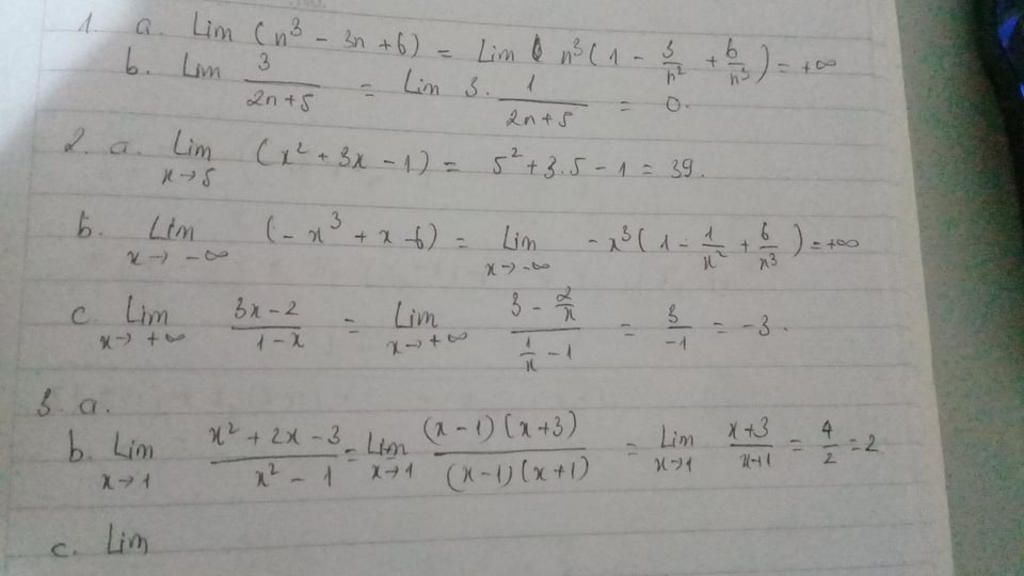 1. a. Lim (n³ - 3n + 6) = Lim n³(1 - 3/n² + 6/n³) = +∞
b. Lim 3/(2n+5) = Lim 3. 1/(2n+5) = 0.
2. a. Lim x→5 (x² + 3x - 1) = 5² + 3.5 - 1 = 39.
b. Lim x→-∞ (-x³ + x - 6) = Lim x→-∞ -x³(1 - 1/x² + 6/x³) = +∞
c Lim x→+∞ (3x-2)/(1-x) = Lim x→+∞ (3 - 2/x)/(1/x - 1) = 3/-1 = -3.
3 a.
b. Lim x→1 (x² + 2x - 3)/(x² - 1) = Lim x→1 (x-1)(x+3)/(x-1)(x+1) = Lim x→1 (x+3)/(x+1) = 4/2 = 2
c. Lim